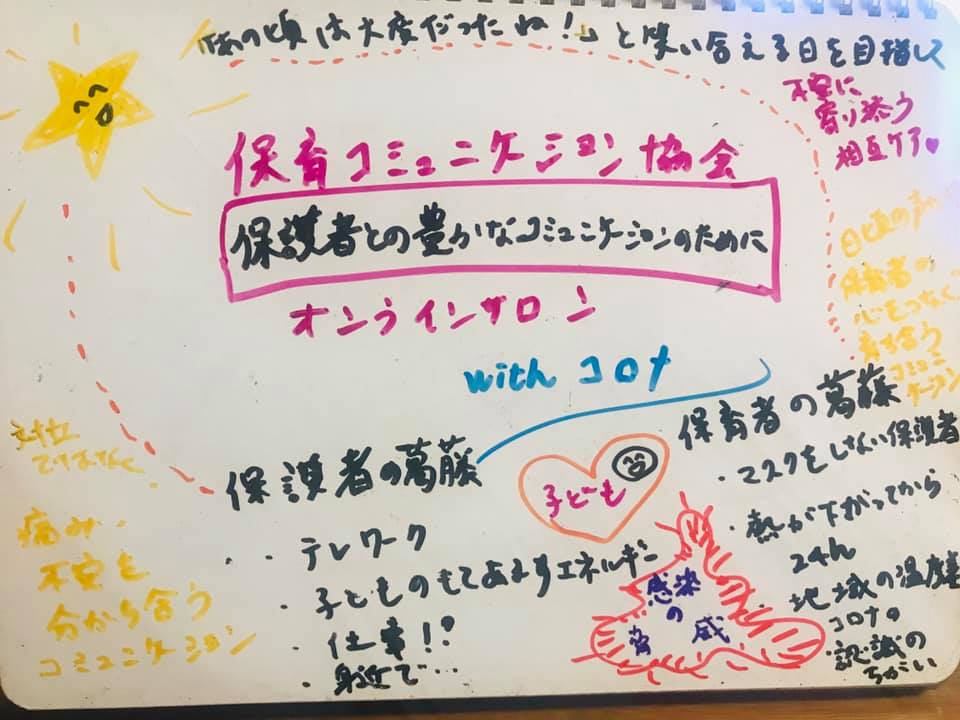 「あの頃は大変だったね!」と笑い合える日を目指して
不安に
寄り添う
相互ケア♥
保育コミュニケーション協会
保護者との豊かなコミュニケーションのために
オンラインサロン
with コロナ
日頃の
保育者の
心をつなぐ
育ち合う
コミュニケーション
対立
ではなく
痛み・
不安を
分かち合う
コミュニケーション
保護者の葛藤
・テレワーク
・子どものもてあますエネルギー
・仕事!?
・身近で…
子ども
感染の脅威
保育者の葛藤
・マスクをしない保護者
・熱が下がってから
24h
・地域の温度差
・コロナの
認識の
ちがい